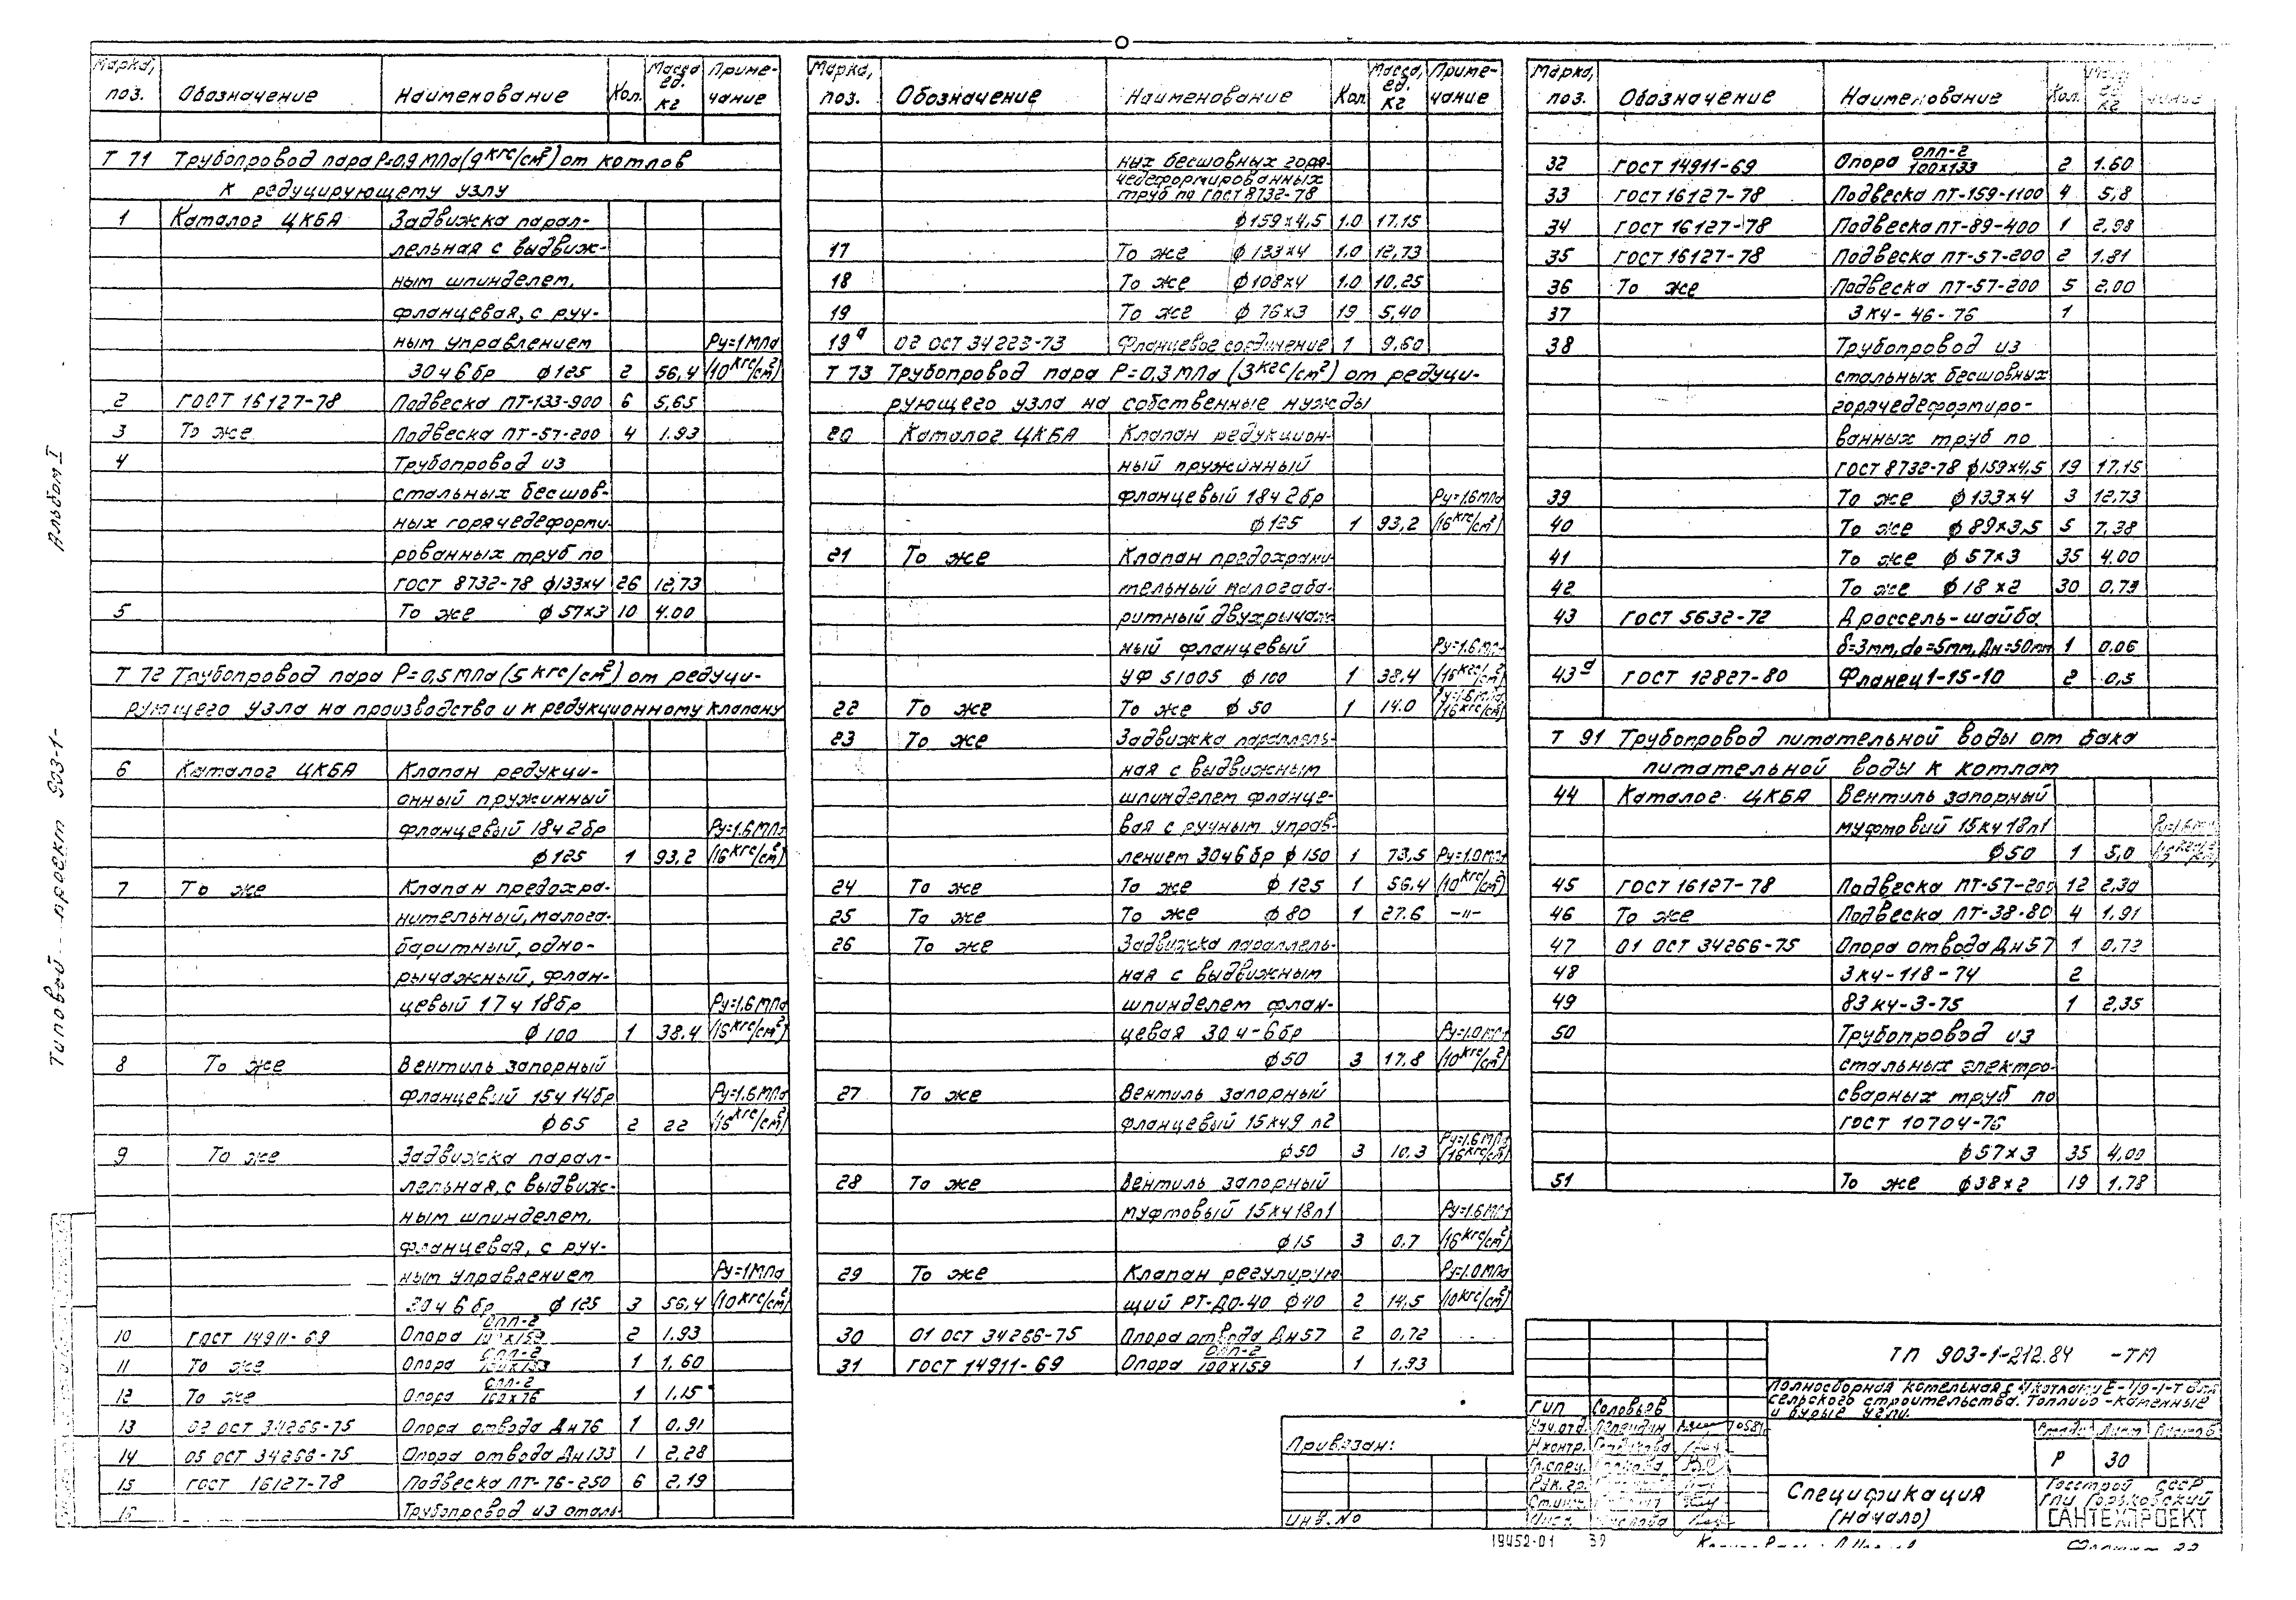 Альбом I
Типовой проект 903-1-
Марка, поз. Обозначение Наименование Кол. Масса ед. кг Примечание
Т 71 Трубопровод пара Р=0,9 МПа (9 кгс/см²) от котлов
к редуцирующему узлу
1 Каталог ЦКБА Задвижка парал-
лельная с выдвиж-
ным шпинделем,
фланцевая, с руч-
ным управлением Ру=1МПа
30ч6бр ф125 2 56,4 (10кгс/см²)
2 ГОСТ 16127-78 Подвеска ПТ-133-900 6 5,65
3 То же Подвеска ПТ-57-200 4 1.93
4 Трубопровод из
стальных бесшов-
ных горячедеформи-
рованных труб по
ГОСТ 8732-78 ф133х4 26 12,73
5 То же ф57х3 10 4.00
Т 72 Трубопровод пара Р=0,5 МПа (5 кгс/см²) от редуци-
рующего узла на производство и к редукционному клапану
6 Каталог ЦКБА Клапан редукци-
онный пружинный
фланцевый 18ч2бр Ру=1.6МПа
ф125 1 93,2 (16кгс/см²)
7 То же Клапан предохра-
нительный, малога-
баритный, одно-
рычажный, флан-
цевый 17ч18бр Ру=1.6МПа
ф100 1 38.4 (16кгс/см²)
8 То же Вентиль запорный
фланцевый 15ч14бр Ру=1.6МПа
ф65 2 22 (16кгс/см²)
9 То же Задвижка парал-
лельная, с выдвиж-
ным шпинделем,
фланцевая, с руч-
ным управлением Ру=1МПа
30ч6бр ф125 3 56,4 (10кгс/см²)
10 ГОСТ 14911-69 Опора ОПП-2/100х159 2 1.93
11 То же Опора ОПП-2/100х133 1 1.60
12 То же Опора ОПП-2/100х76 1 1.15
13 02 ОСТ 34266-75 Опора отвода Дн76 1 0.91
14 05 ОСТ 34266-75 Опора отвода Дн133 1 2,28
15 ГОСТ 16127-78 Подвеска ПТ-76-250 6 2.19
16 Трубопровод из сталь-
Марка, поз. Обозначение Наименование Кол Масса, ед. кг Примечание
ных бесшовных горя-
чедеформированных
труб по ГОСТ 8732-78
ф159х4,5 1.0 17.15
17 То же ф133х4 1.0 12,73
18 То же ф108х4 1.0 10.25
19 То же ф76х3 19 5,40
19а 02 ОСТ 34223-73 Фланцевое соединение 1 9.60
Т 73 Трубопровод пара Р=0,3 МПа (3кгс/см²) от редуци-
рующего узла на собственные нужды
20 Каталог ЦКБА Клапан редукцион-
ный пружинный
фланцевый 18ч2бр Ру=1.6МПа
ф125 1 93,2 (16кгс/см²)
21 То же Клапан предохрани-
тельный малогаба-
ритный двухрычаж-
ный фланцевый Ру=1.6МПа
УФ 51005 ф100 1 38.4 (16кгс/см²)
22 То же То же ф50 1 14.0 Ру=1.6МПа (16кгс/см²)
23 То же Задвижка параллель-
ная с выдвижным
шпинделем фланце-
вая с ручным управ-
лением 30ч6бр ф150 1 73,5 Ру=1.0МПа
24 То же То же ф125 1 56.4 (10кгс/см²)
25 То же То же ф80 1 27.6 -"-
26 То же Задвижка параллель-
ная с выдвижным
шпинделем флан-
цевая 30ч-6бр Ру=1.0МПа
ф50 3 17,8 (10кгс/см²)
27 То же Вентиль запорный
фланцевый 15кч9п2
ф50 3 10.3 Ру=1.6МПа (16кгс/см²)
28 То же Вентиль запорный
муфтовый 15кч18п1 Ру=1.6МПа
ф15 3 0.7 (16кгс/см²)
29 То же Клапан регулирую- Ру=1.0МПа
щий РТ-ДО-40 ф40 2 14,5 (10кгс/см²)
30 01 ОСТ 34266-75 Опора отвода Дн57 2 0,72
31 ГОСТ 14911-69 Опора ОПП-2/100х159 1 1.93
Марка, поз. Обозначение Наименование Кол. Масса ед. кг чание
32 ГОСТ 14911-69 Опора ОПП-2/100х133 2 1.60
33 ГОСТ 16127-78 Подвеска ПТ-159-1100 4 5,8
34 ГОСТ 16127-78 Подвеска ПТ-89-400 1 2,98
35 ГОСТ 16127-78 Подвеска ПТ-57-200 2 1.81
36 То же Подвеска ПТ-57-200 5 2,00
37 3кч-46-76 1
38 Трубопровод из
стальных бесшовных
горячедеформиро-
ванных труб по
ГОСТ 8732-78 ф159х4,5 19 17,15
39 То же ф133х4 3 12,73
40 То же ф89х3,5 5 7,38
41 То же ф57х3 35 4.00
42 То же ф18х2 30 0,79
43 ГОСТ 5632-72 Дроссель-шайба
δ=3mm, do=5mm, Дн=50mm 1 0,06
43а ГОСТ 12827-80 Фланец 1-15-10 2 0,5
Т 91 Трубопровод питательной воды от бака
питательной воды к котлам
44 Каталог ЦКБА Вентиль запорный
муфтовый 15кч18п1 Ру=1.6МПа
ф50 1 5,0 (16кгс/см²)
45 ГОСТ 16127-78 Подвеска ПТ-57-200 12 2,30
46 То же Подвеска ПТ-38-80 4 1,91
47 01 ОСТ 34266-75 Опора отвода Дн57 1 0,72
48 3кч-118-74 2
49 83кч-3-75 1 2,35
50 Трубопровод из
стальных электро-
сварных труб по
ГОСТ 10704-76
ф57х3 35 4,00
51 То же ф38х2 19 1.78
ТП 903-1-212.84 -ТМ
Полносборная котельная с 4 котлами Е-1/9-1-Т для
сельского строительства. Топливо-каменные
и бурые угли.
ГИП Соловьев
Нач.отд.
Н.контр.
Гл.спец.
Рук.гр.
Ст.инж.
Привязан:
Инв.№
Стадия Лист Листов
Р 30
Спецификация
(начало)
Госстрой СССР
ГПИ Горьковский
САНТЕХПРОЕКТ
19452-01 39